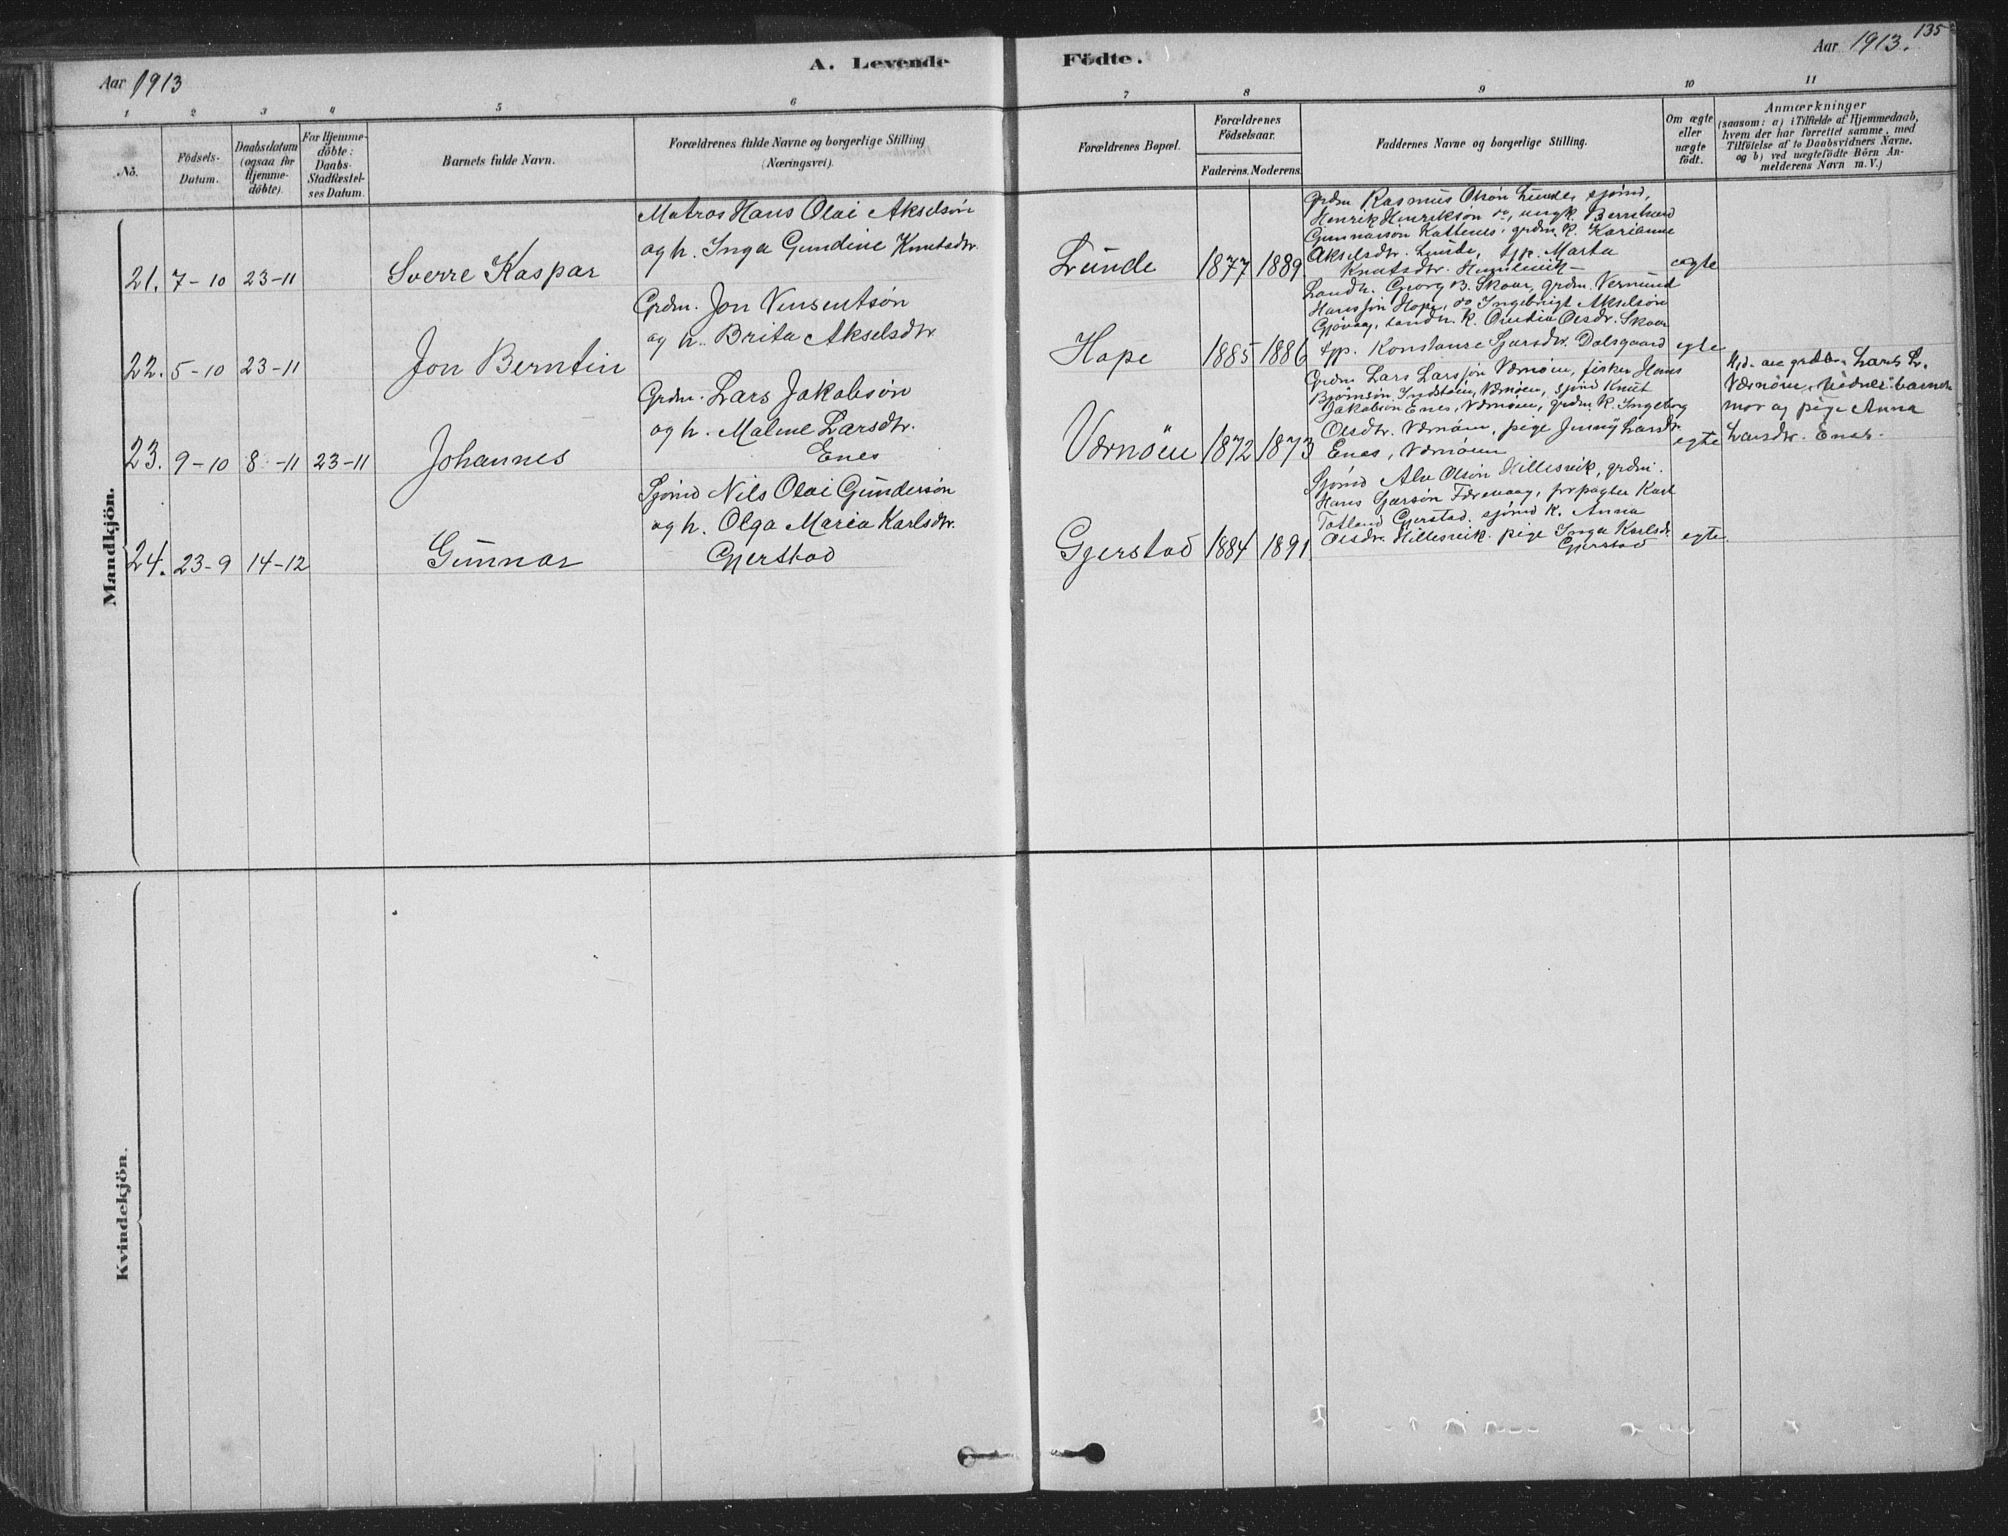 135
Aar 1913
A. Levende
Födte.
Aar 1913.
1 2 3 4 5 6 7 8 9 10 11
No.
Födsels-
Datum.
Daabsdatum
(ogsaa for
Hjemme-
döbte).
For Hjemme-
döbte:
Daabs-
Stadfæstel-
ses Datum.
Barnets fulde Navn.
Forældrenes fulde Navne og borgerlige Stilling
(Næringsvei).
Forældrenes Bopæl.
Forældrenes
Födselsaar.
Faderens. Moderens.
Faddernes Navne og borgerlige Stilling.
Om ægte
eller
uægte
födt.
Anmærkninger
(saasom: a) i Tilfælde af Hjemmedaab,
hvem der har forrettet samme, med
Tilföielse af to Daabsvidners Navne,
og b) ved uægtefödte Börn An-
melderens Navn m. V.)
Mandkjön.
21. 7-10 23-11
Sverre Kaspar
Matros Hans Olai Akselsøn
og h. Inga Gundine Knutsdtr.
Lunde
1877 1889
Grdm Rasmus Olsøn Lunde, sjømd,
Henrik Henriksøn do, ungk. Berntsend
Gunnarsøn Kattenes, grdm. k. Karianne
Akselsdtr. Lunde, tjp. Marta
Knutsdtr.
ægte
22. 5-10 23-11
Jon Berntin
Grdm. Jon Vensentsøn
og h. Brita Akselsdtr
Hope
1885 1886
Landh. Georg B. Skaar, grdm. Vermund
Hanssøn Hope, do Ingebrigt Akselsøn
Gjøvaag, Landh. k. Olsdtr. Skaar
tjp. Konstanse Dalsgaard
egte
23. 9-10 8-11 23-11
Johannes
Grdm. Lars Jakobsøn
og h. Malene Larsdtr.
Enes
Værnøen
1872 1873
Grdm Lars Larssøn Værnøen, fisker Hans
Bjørnsøn Værnøen, sjømd Knut
Jakobsøn Enes, Værnøen, grdm. k. Ingeborg
Olsdtr. Værnøen, pige Jenny Larsdtr
Enes, Værnøen
egte
Hjd. av grdbr. Lars L.
Værnøen, Vidner: barnets
mor og pige Anna
Larsdtr. Enes.
24. 23-9 14-12
Gunnar
Sjømd Nils Olai Gundersøn
og h. Olga Maria Karlsdtr.
Gjerstad
Gjerstad
1884 1891
Sjømd Alv Olsøn Hillesvik, grdm.
Hans forpagter Karl
Totland Gjerstad, sjømd k. Anna
Olsdtr. Hillesvik, pige Inga Karlsd.
Gjerstad
egte
Kvindekjön.